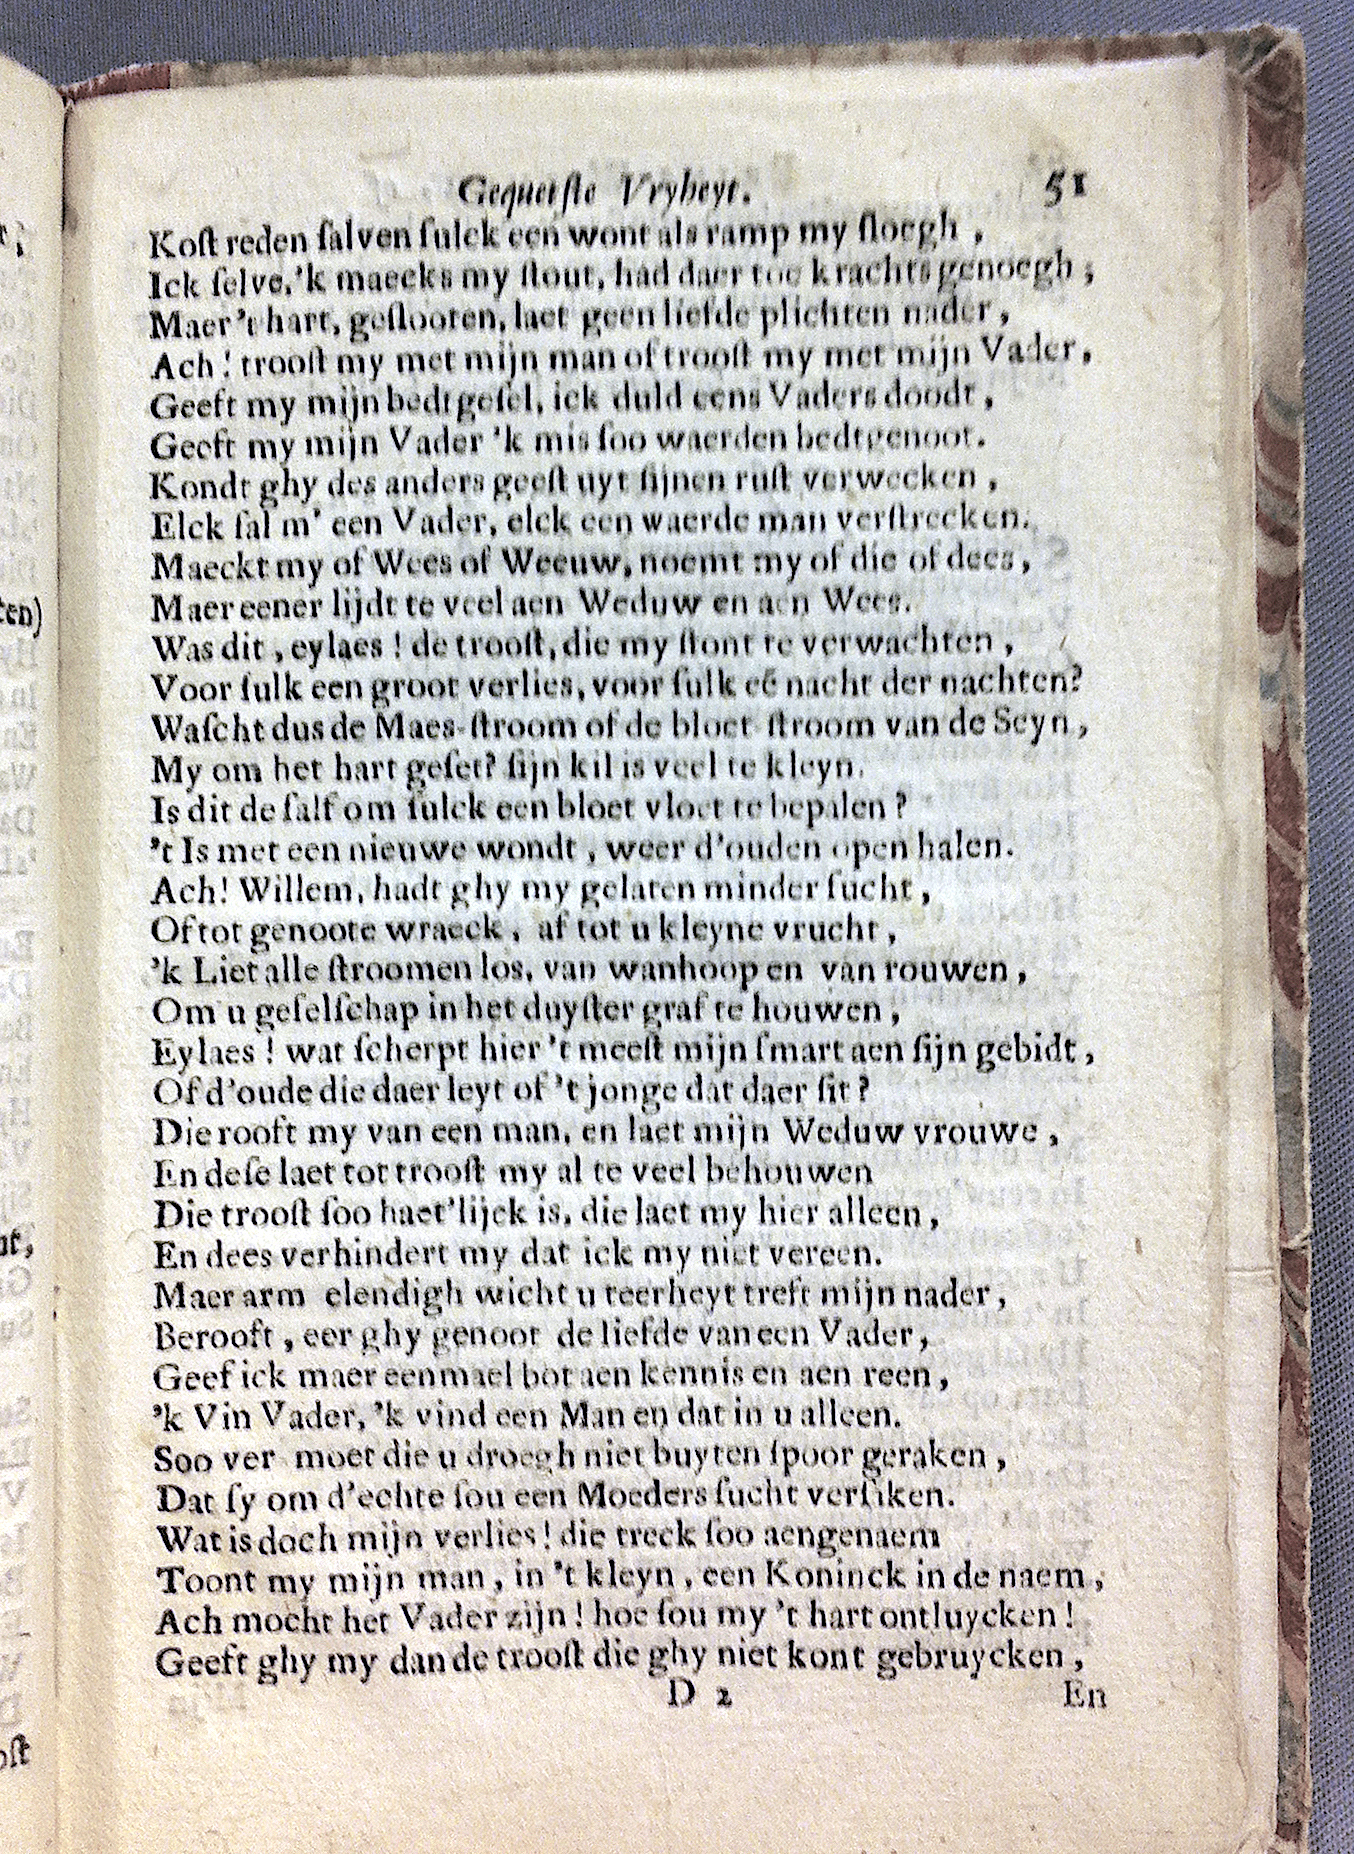 Gequetſte Vryheyt. 51
Koſt reden ſalven ſulck een wont als ramp my ſloegh ,
Ick ſelve, 'k maecks my ſtout, had daer toe krachts genoegh ;
Maer 't hart, geſlooten, laet geen liefde plichten nader ,
Ach ! trooſt my met mijn man of trooſt my met mijn Vader ,
Geeft my mijn bedtgeſel, ick duld eens Vaders doodt ,
Geeft my mijn Vader 'k mis ſoo waerden bedtgenoot.
Kondt ghy des anders geeſt uyt ſijnen ruſt verwecken ,
Elck ſal m' een Vader, elck een waerde man verſtrecken.
Maeckt my of Wees of Weeuw, noemt my of die of dees ,
Maer eener lijdt te veel aen Weduw en aen Wees.
Was dit , eylaes ! de trooſt, die my ſtont te verwachten ,
Voor ſulk een groot verlies, voor ſulk eē nacht der nachten?
Waſcht dus de Maes-ſtroom of de bloet-ſtroom van de Seyn ,
My om het hart geſet? ſijn kil is veel te kleyn.
Is dit de ſalf om ſulck een bloet vloet te bepalen ?
't Is met een nieuwe wondt , weer d'ouden open halen.
Ach! Willem, hadt ghy my gelaten minder ſucht ,
Of tot genoote wraeck , af tot u kleyne vrucht ,
'k Liet alle ſtroomen los, van wanhoop en van rouwen ,
Om u geſelſchap in het duyſter graf te houwen ,
Eylaes ! wat ſcherpt hier 't meeſt mijn ſmart aen ſijn gebidt ,
Of d'oude die daer leyt of 't jonge dat daer ſit ?
Die rooft my van een man, en laet mijn Weduw vrouwe ,
En deſe laet tot trooſt my al te veel behouwen
Die trooſt ſoo haet'lijck is, die laet my hier alleen ,
En dees verhindert my dat ick my niet vereen.
Maer arm elendigh wicht u teerheyt treft mijn nader ,
Berooft , eer ghy genoot de liefde van een Vader ,
Geef ick maer eenmael bot aen kennis en aen reen ,
'k Vin Vader, 'k vind een Man en dat in u alleen.
Soo ver moet die u droegh niet buyten ſpoor geraken ,
Dat ſy om d'echte ſou een Moeders ſucht verſaken.
Wat is doch mijn verlies! die treck ſoo aengenaem
Toont my mijn man , in 't kleyn , een Koninck in de naem ,
Ach mocht het Vader zijn ! hoe ſou my 't hart ontluycken !
Geeft ghy my dan de trooſt die ghy niet kont gebruycken ,
D 2 En